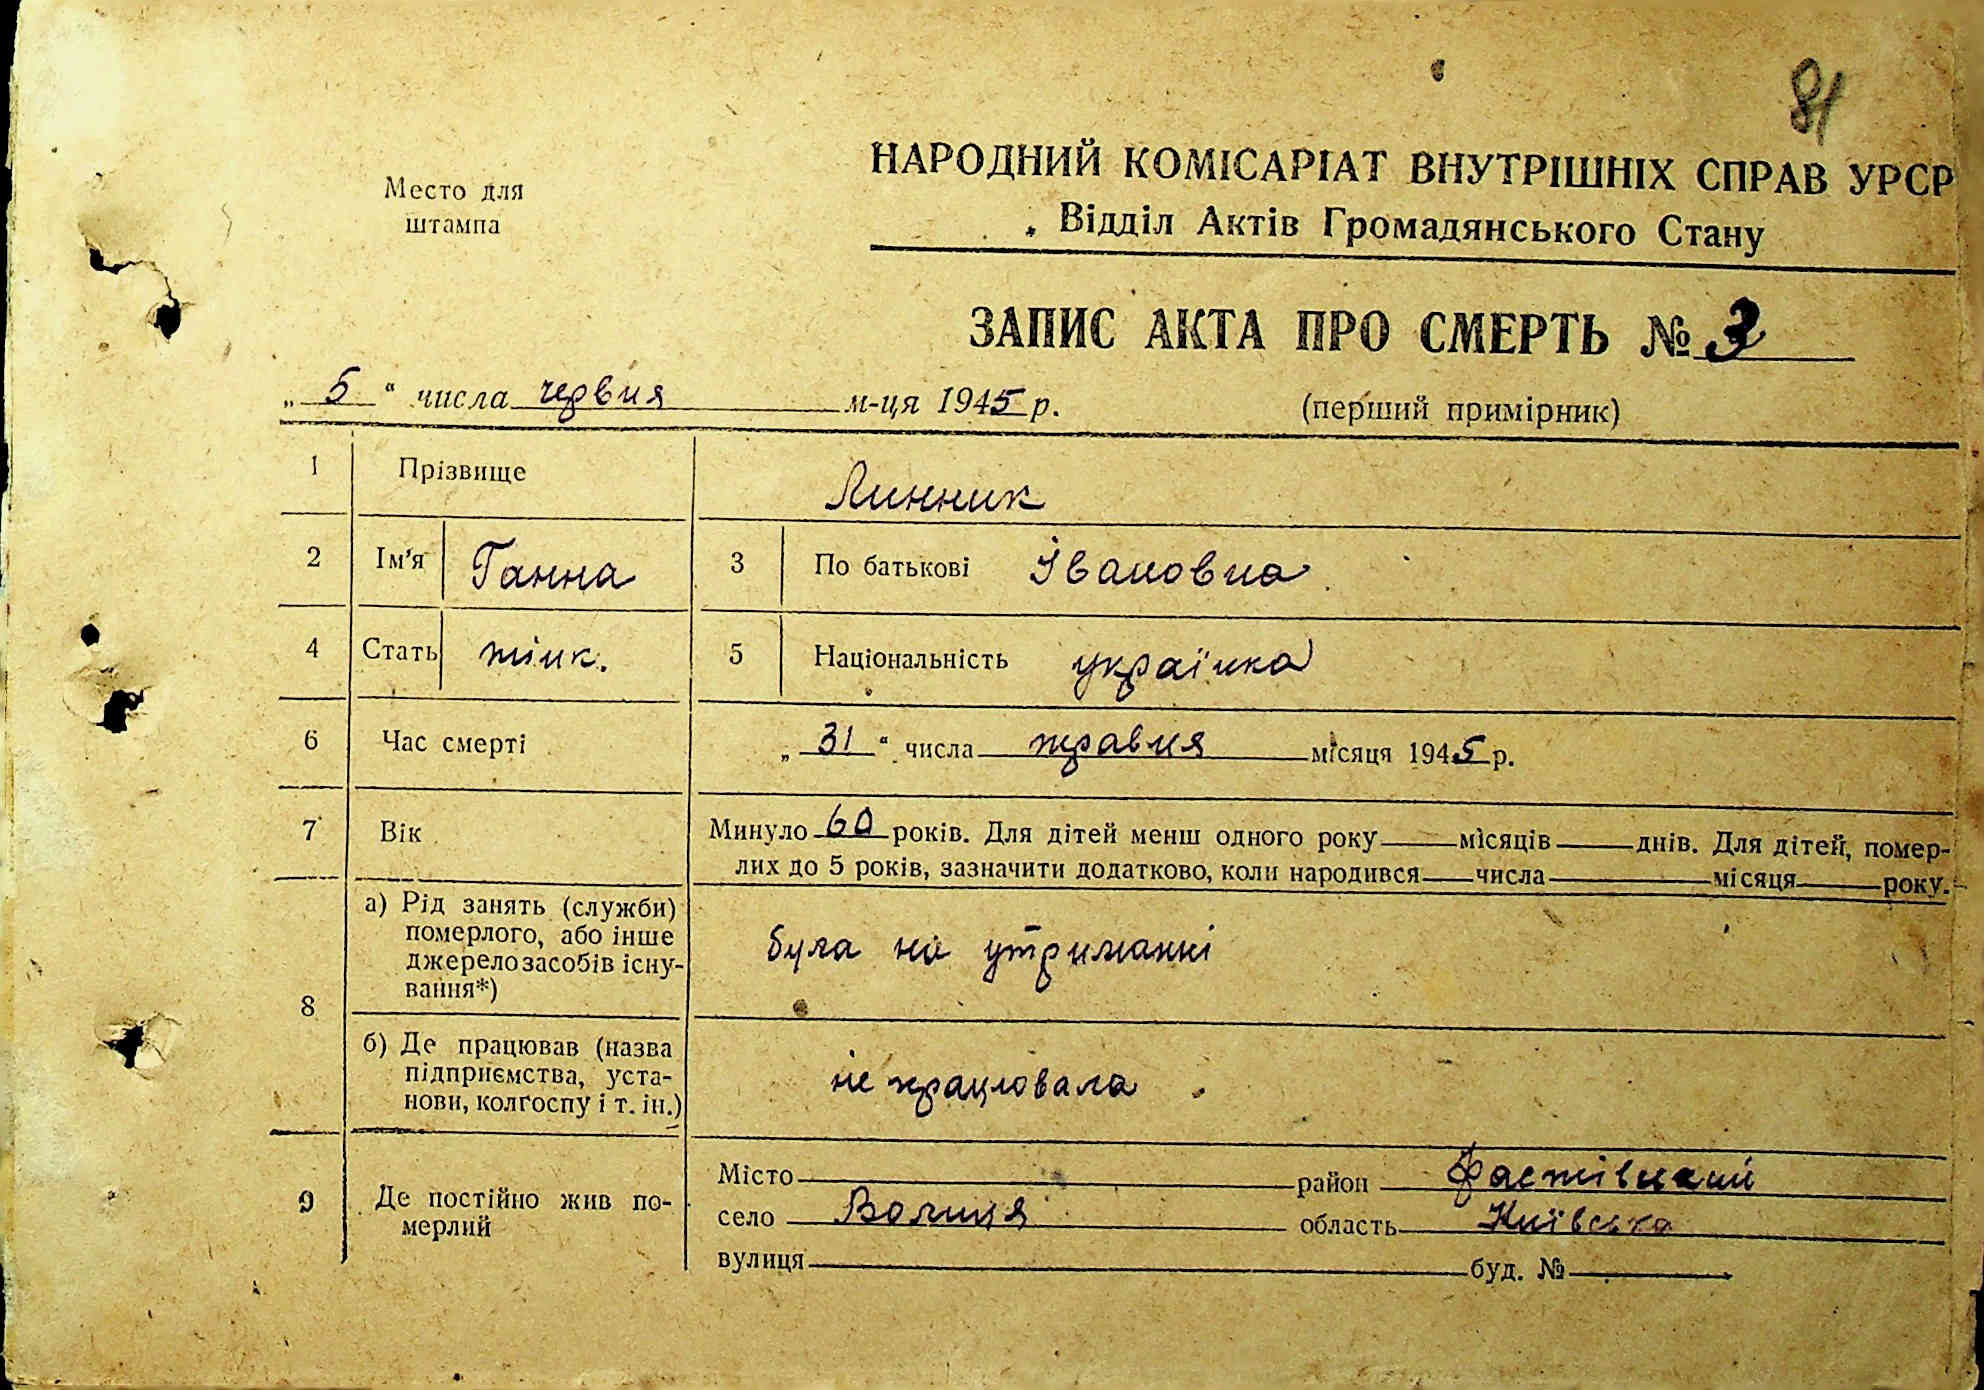 81
Место для
штампа
НАРОДНИЙ КОМІСАРІАТ ВНУТРІШНІХ СПРАВ УРСР
Відділ Актів Громадянського Стану
ЗАПИС АКТА ПРО СМЕРТЬ № 3
„ 5 “ числа червня м-ця 1945 р.
(перший примірник)
1 Прізвище Линник
2 Ім'я Ганна 3 По батькові Івановна
4 Стать жінк. 5 Національність українка
6 Час смерті „ 31 “ числа травня місяця 1945 р.
7 Вік Минуло 60 років. Для дітей менш одного року місяців днів. Для дітей, помер-
лих до 5 років, зазначити додатково, коли народився числа місяця року.
8 а) Рід занять (служби)
померлого, або інше
джерело засобів існу-
вання*)
була на утриманні
б) Де працював (назва
підприємства, уста-
нови, колгоспу і т. ін.)
не працювала
9 Де постійно жив по-
мерлий
Місто район Фастівський
село Волиця область Київська
вулиця буд. №